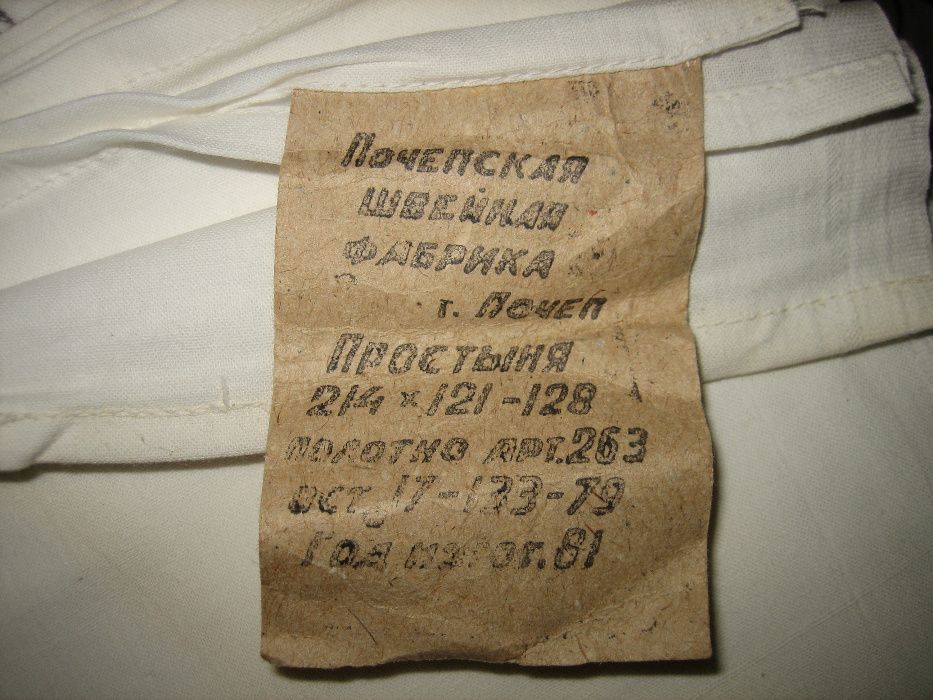 Почепская
швейная
фабрика
г. Почеп
Простыня
214 × 121-128
полотно арт.263
ост. 17-133-79
Год изгот. 81